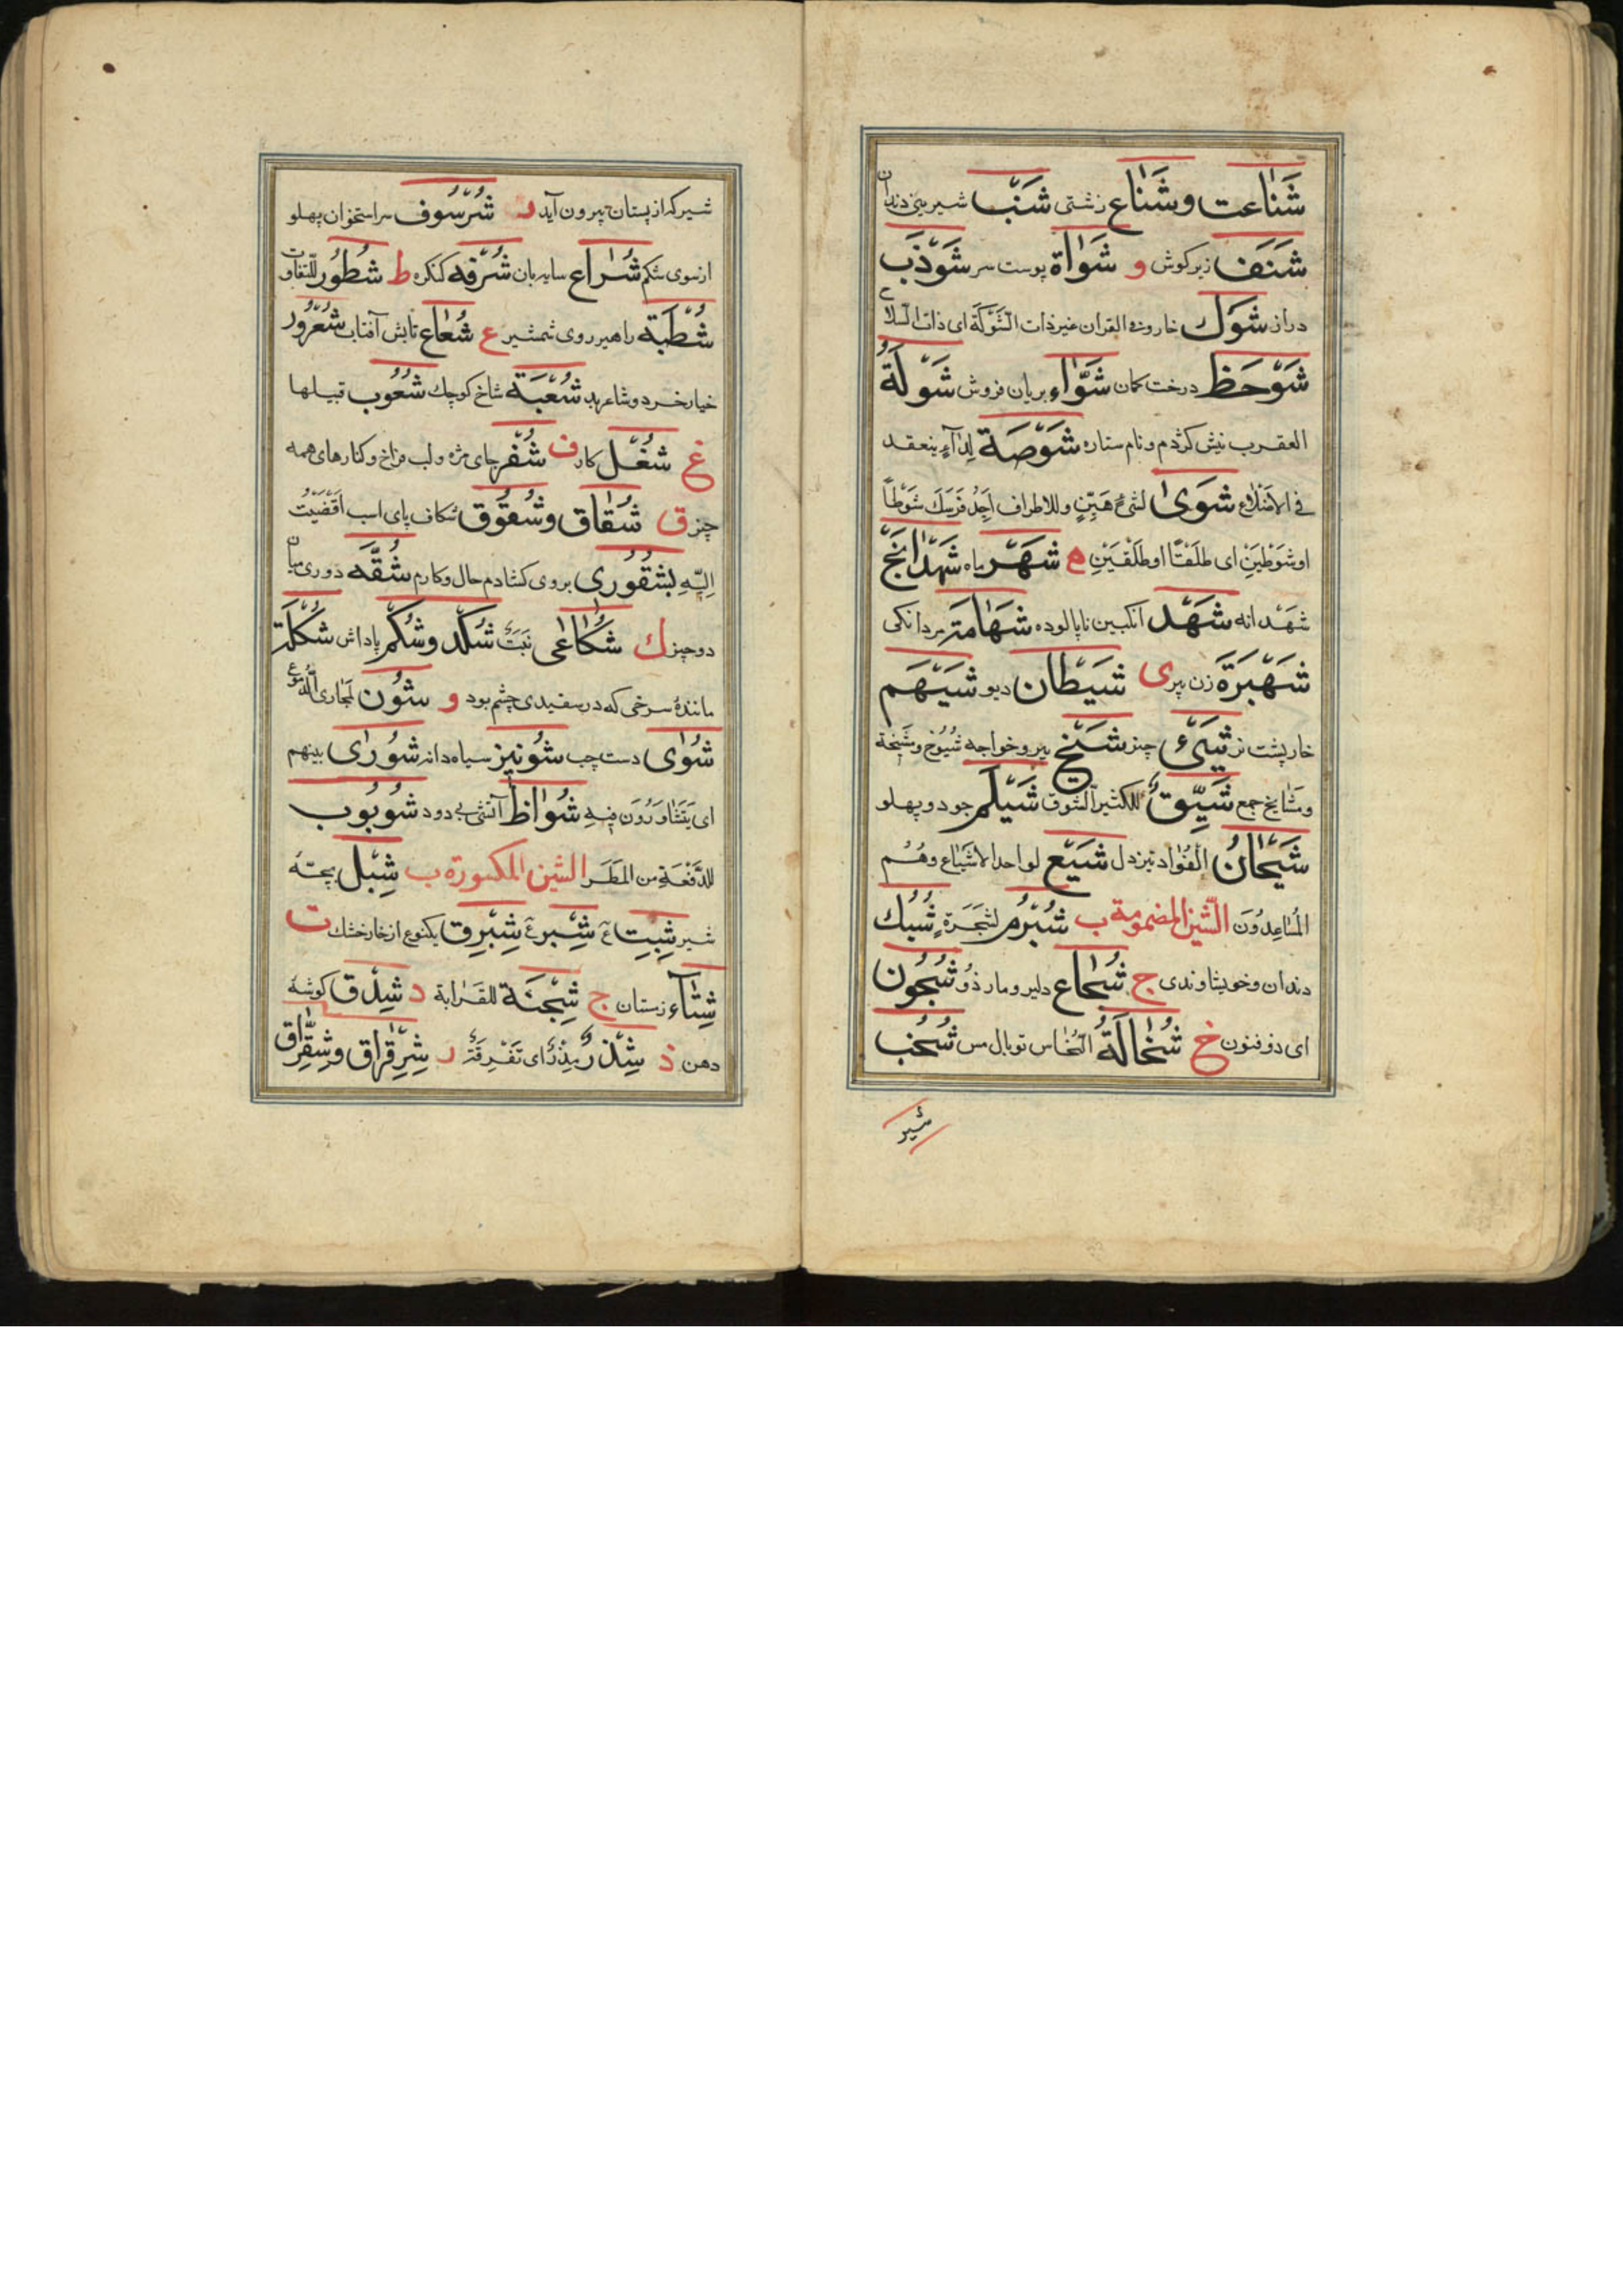 شَنَاعت وشَنَاع زشتی شَنَب شیرینی دندان
شَنَف زبر کوش و شَوَاة پوست سر شَوْذَب
دراز شَوْك خار وفی القران غیر ذات الشَّوْكَة ای ذات السلاح
شَوْحَظ درخت کمان شَوَّاء بریان فروش شَوْلَةُ
العقرب نیش کژدم ونام ستاره شَوْصَة لِدَآءٍ ینعقد
فی الاَضْلاع شَوَیٰ لشیءٍ هَیِّنٍ وللاطراف اَجِدُ فَرَسَكَ شَوْطاً
اوشَوْطَیْنِ ای طَلَقْتًا او طَلَقْتَیْنِ ه شَهْر ماه شَهْدَانَج
شَهْدانه شَهْد انکبین ناپالوده شَهَامَة مردانکی
شَهْبَرَة زن پیر ی شَیْطَان دیو شَیْهَم
خارپشت نر شَیْء چیز شَیْخ پیر وخواجه شُیُوخ وشَیْخَة
ومَشَایخ جمع شَیِّقٌ للکثیر الشوق شَیْلَم جو دو پهلو
شَیْحَانُ الفُؤاد تیزدل شَیْع لواحد الاشیاع وهُم
المُسَاعِدُونَ الشین المضمومة ب شُبْرُم لشَجَرَةٍ شُبُك
دندان وخویشاوندی ج شُجَاع دلیر ومار ذُو شُجُون
ای ذوفنون خ شُخَالَةُ النُّحَاس توبال مس شُخْب
شیر
شیر که از پستان بیرون آید ر شُرْسُوف سر استخوان پهلو
از سوی شکم شُرَاع سایه بان شُرْفه کنکره ط شُطُور للتفاوت
شُطْبَة راهبر روی شمشیر ع شُعَاع تابش آفتاب شُعْرُور
خیار خرد وشاعر بد شُعْبَة شاخ کوچك شُعُوب قبیلها
غ شُغْل کار ف شُفْر جای مژه ولب فراخ وکنارهای همه
چیز ق شُقَاق وشُقُوق شکاف پای اسب اَفْضَیْتُ
اِلَیْهِ بشُقُوری بروی کشادم حال وکارم شُقَّه دوری میان
دو چیز ك شُكَاعٰی نَبَتٌ شُكْد وشُكْم پاداش شُكْلَة
مانندهٔ سرخی که در سفیدی چشم بود و شُؤُن لمجاری الدُّمُوع
شُوٰی دست چپ شُونیز سیاه دانه شُورٰی بینهم
ای یَتَشَاوَرُونَ فیهِ شُوَاظ آتشی بی دود شُؤبُوب
للدَّفْعَةِ من المَطَر الشین المکسورة ب شِبْل بچّه
شیر شِبِت عٓ شِبْر عٓ شِبْرِق یکنوع از خارخشك ت
شِتَآء زمستان ج شِجْنَة للقَرَابة د شِدْق کوشهٔ
دهن ذ شِذَرَ مِذَرَ ای تَفْرِقَةً ر شِرِقْرَاق وشِقِرَّاق